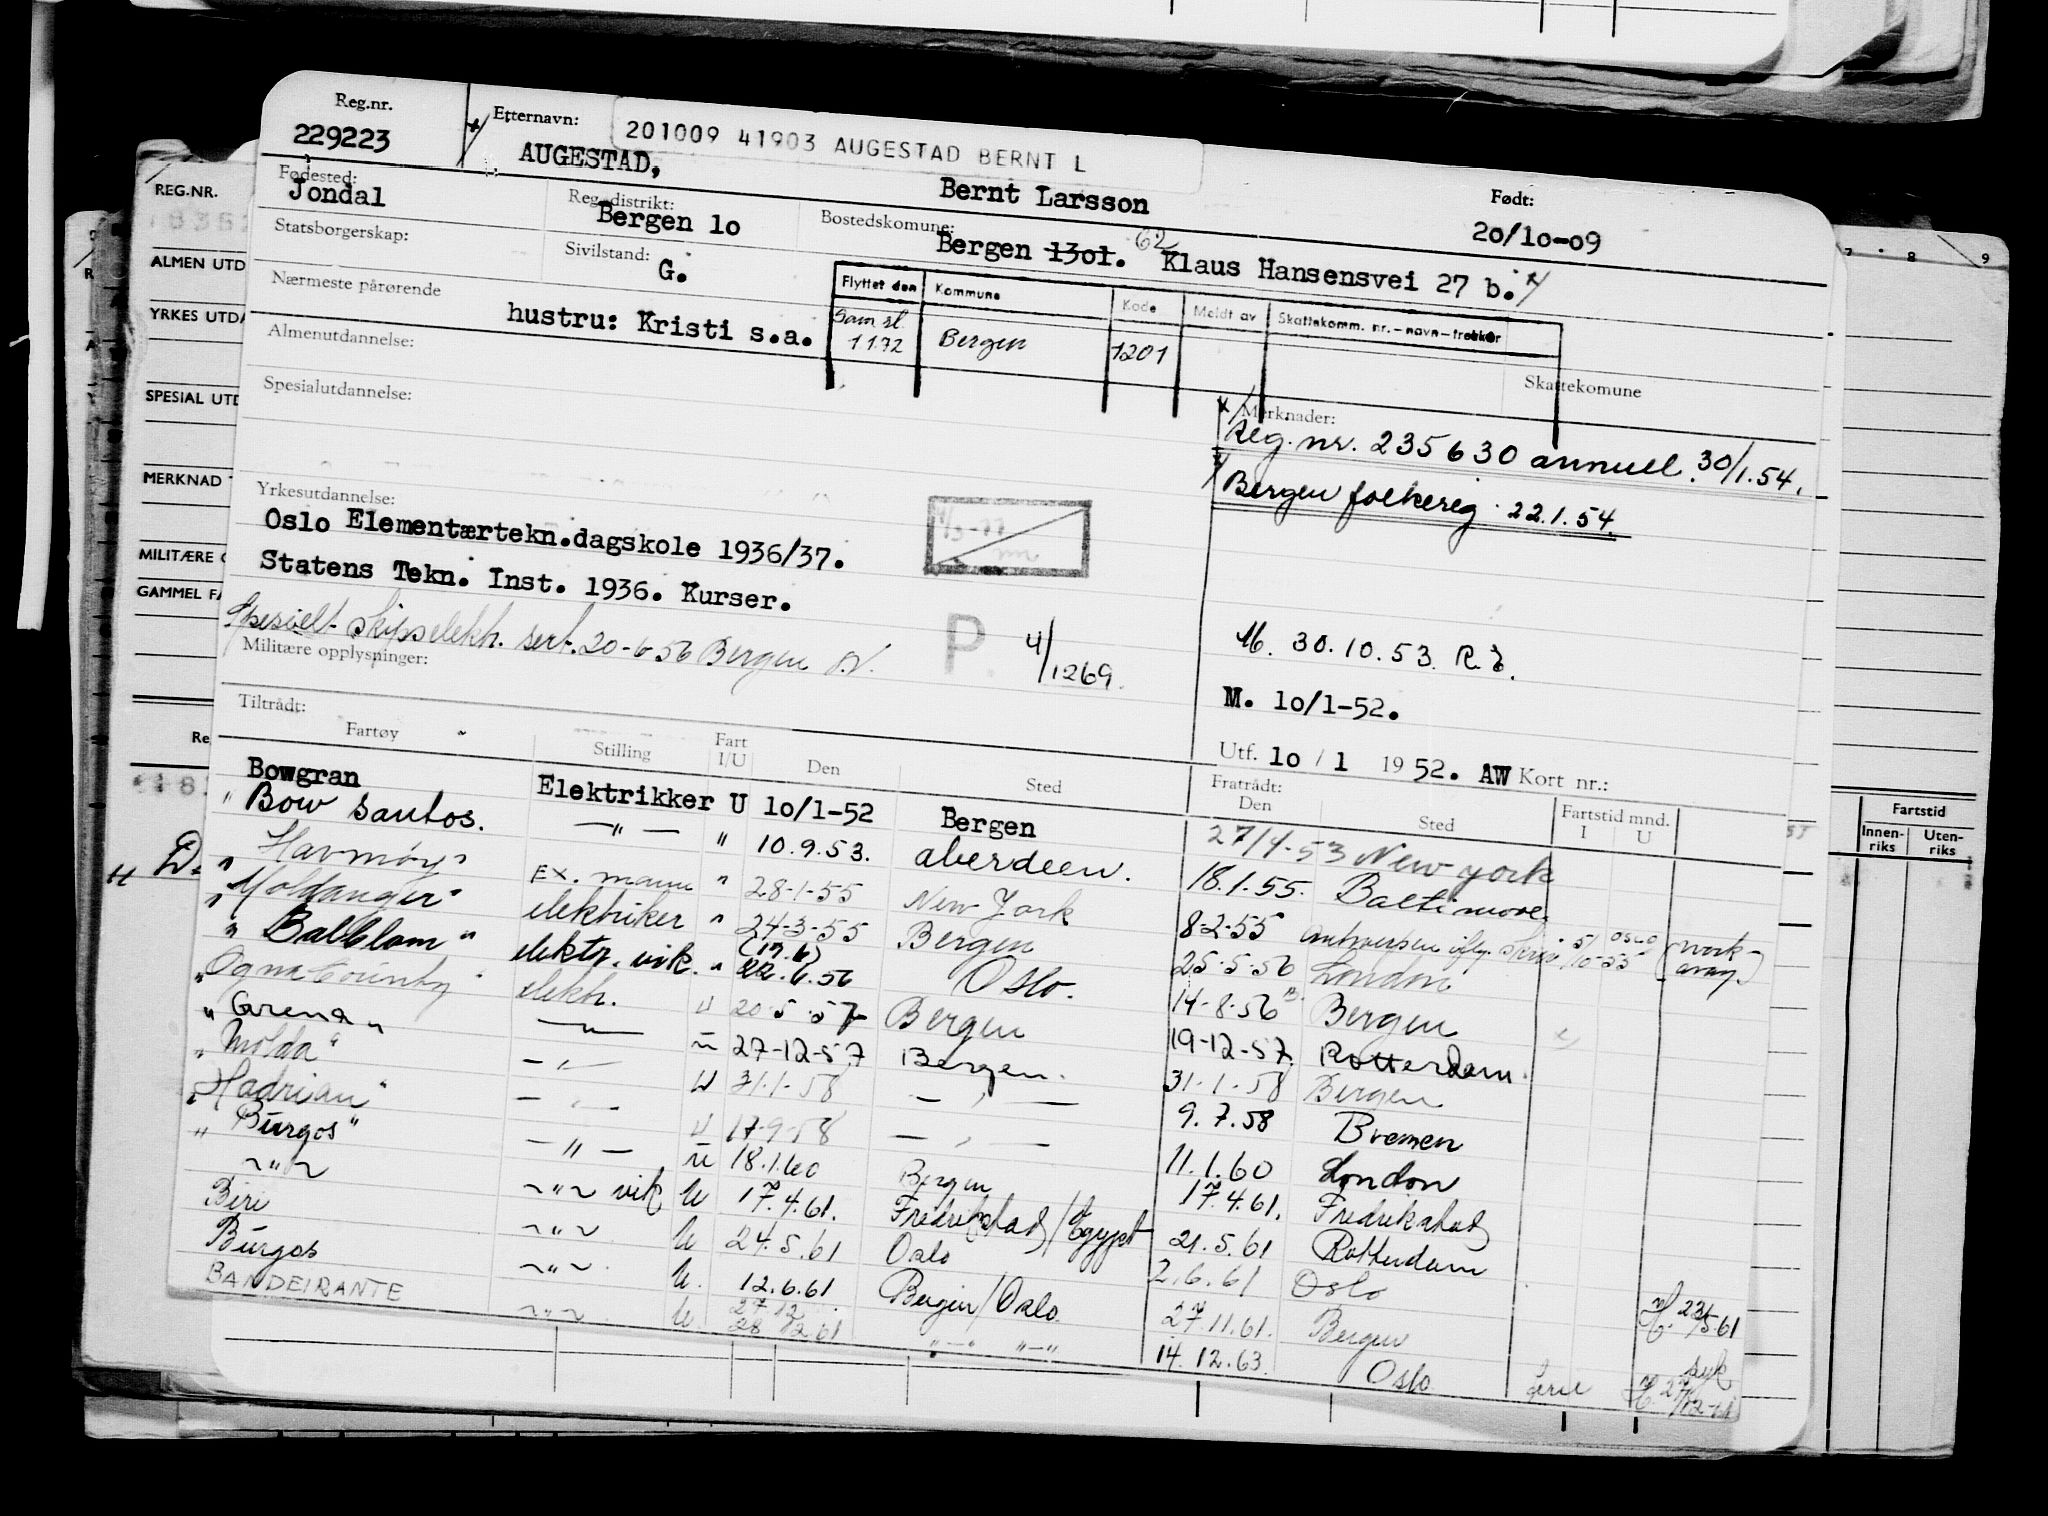 Reg.nr. 229223
Etternavn: 201009 41903 AUGESTAD BERNT L
AUGESTAD, Bernt Larsson
Født: 20/10-09
Fødested: Jondal
Reg.distrikt: Bergen 10
Bostedskomune: Bergen 1301. 62 Klaus Hansensvei 27 b.
Statsborgerskap:
Sivilstand: G.
Nærmeste pårørende hustru: Kristi s.a.
Flyttet den Kommune Kode Meldt av Skattekomm. nr.-navn-trekker
1172 Bergen 1201
Almenutdannelse:
Skattekomune
Spesialutdannelse:
Merknader:
Reg. nr. 235630 annull. 30/1.54.
Bergen folkereg. 22.1.54.
Yrkesutdannelse:
Oslo Elementærtekn.dagskole 1936/37.
Statens Tekn. Inst. 1936. Kurser.
Spesielt skipselektr. sert. 20-6-56 Bergen
P 4/1269.
Militære opplysninger:
M. 30.10.53.
M. 10/1-52.
Utf. 10 / 1 1952. AW Kort nr.:
Tiltrådt:
Fartøy Stilling Fart I/U Den Sted
Fratrådt: Den Sted Fartstid mnd. I U
Bowgran Elektrikker U 10/1-52 Bergen 27/4-53 New York
" Bow Santos. —"— " 10.9.53. Aberdeen. 18.1.55. Baltimore.
" Havmøy" Ex. mann " 28-1-55 New York 8-2-55 Antwerpen Oslo (workaway)
" Moldanger" elektriker " 24-3-55 Bergen 25-5-56 London
" Balblom" elektr. vik. " (17.6) 22.6.56 Oslo. 14-8-56 Bergen
" Ogna elektr. U 20-5-57 Bergen 19-12-57. Rotterdam.
" Grena " —"— U 27-12-57 Bergen. 31-1-58 Bergen
" Molda" —"— U 31-1-58 —"— 9.7.58 Bremen
" Hadrian" —"— U 17-9-58 —"— 11.1.60 London
" Burgos" —"— U 18.1.60 Bergen 17.4.61. Fredrikstad
~"~ ~"~ vik U 17.4.61. Fredrikstad/Egypt 21.5.61 Rotterdam
Biri ~"~ U 24.5.61 Oslo 2.6.61 Oslo
Burgos ~"~ U. 12.6.61 Bergen/Oslo. 27.11.61. Bergen
BANDEIRANTE ~"~ U. 28/12 61 "—" "—" 14.12.63. Oslo ferie
REG.NR.
ALMEN UTD
YRKES UTDA
SPESIAL UTD
MERKNAD
MILITÆRE
GAMMEL FA
Fartstid
Innenriks Utenriks